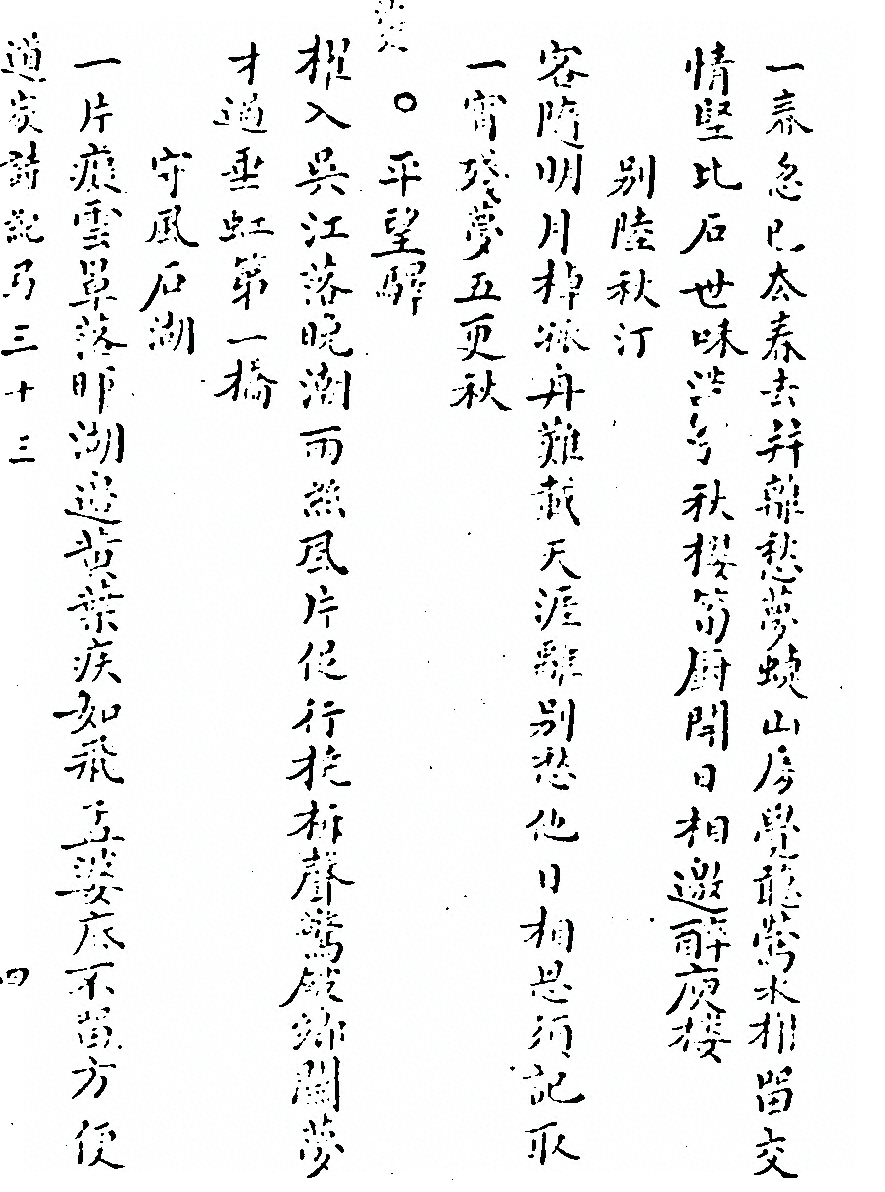 一春忽已奈春去并離愁夢蝶山房覺聽鶯水榭留交
情堅比石世味淡兮秋櫻筍廚開日相邀醉庾樓
別陸秋汀
客隨明月棹孤舟難載天涯離別愁他日相思須記取
一宵殘夢五更秋
○平望驛
櫂入吳江落晚潮雨絲風片促行桡柝聲驚破鄉關夢
才過垂虹第一橋
守風石湖
一片癡雲罩落暉湖邊黃葉疾如飛孟婆底不留方便
道炭詩說乃三十三
四